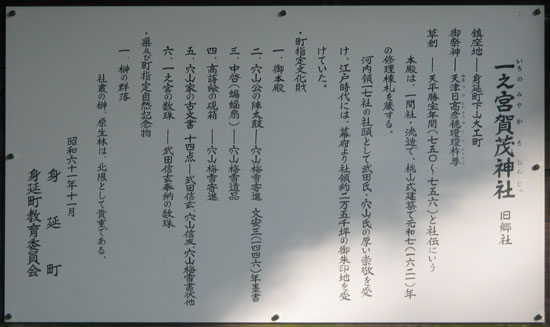 いちのみやかもじんじゃ
一之宮賀茂神社 旧郷社
鎮座地―身延町下山大工町
御祭神―天津日高彦穂瓊瓊杵尊
草創―天平勝宝年間(七五〇~七五六)と社伝にいう
本殿は、一間社、流造で、桃山式建築で元和七(一六二一)年
の修理棟札を蔵する。
河内領一七社の社頭として武田氏・穴山氏の厚い崇敬を受
け、江戸時代には、幕府より社領約二万五千坪の御朱印地を受
けていた。
・町指定文化財
一、御本殿
二、穴山公の陣太鼓―穴山梅雪寄進 文安三(一四四六)年墨書
三、中啓(蝙蝠扇)―穴山梅雪遺品
四、高蒔絵の硯箱―穴山梅雪寄進
五、穴山家の古文書 十四点―武田信玄、穴山信友、穴山梅雪書状他
六、一之宮の数珠―武田信玄奉納の数珠
・県及び町指定自然記念物
一、榊の群落
社叢の榊、原生林は、北限として貴重である。
昭和六十一年十一月
身延町
身延町教育委員会